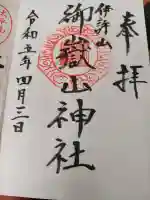 奉拝
伊許山
御嶽山神社
令和五年四月三日